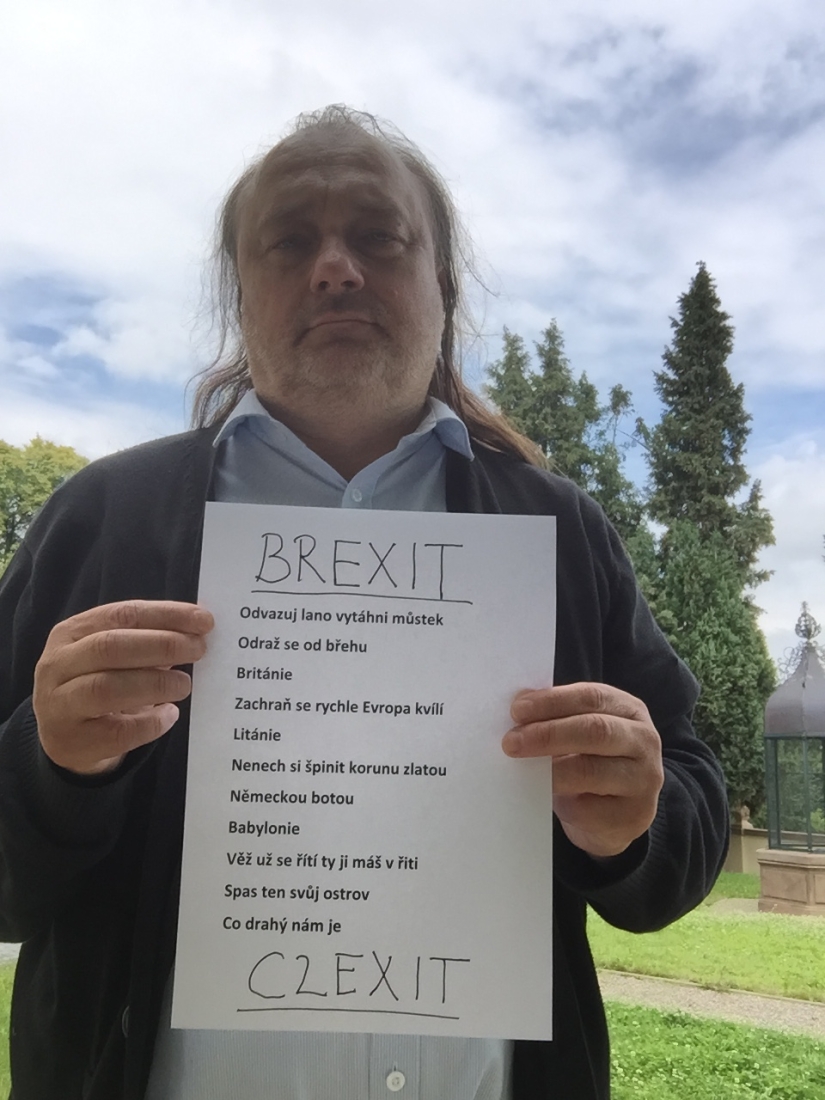 BREXIT
Odvazuj lano vytáhni můstek
Odraž se od břehu
Británie
Zachraň se rychle Evropa kvílí
Litánie
Nenech si špinit korunu zlatou
Německou botou
Babylonie
Věž už se řítí ty ji máš v řiti
Spas ten svůj ostrov
Co drahý nám je
CZEXIT